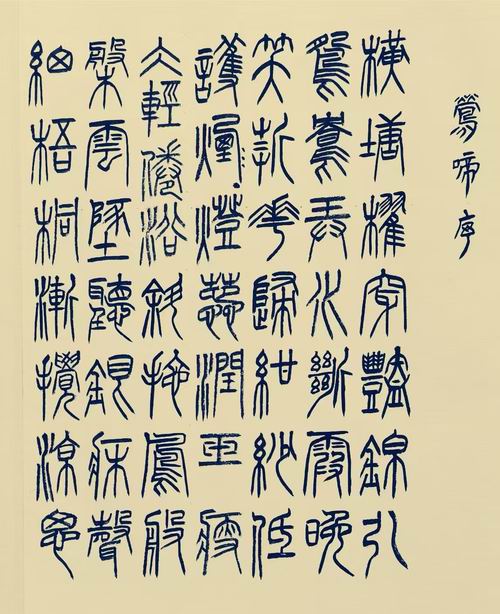 鶯啼序
橫塘櫂穿豔錦引
鴛鴦弄水斷霞晚
笑折花歸紺紗低
護燈蕊潤玉瘦
仌輕倦浴斜拖鳳股
槃雲墜聽銀牀聲
細梧桐漸攪涼思